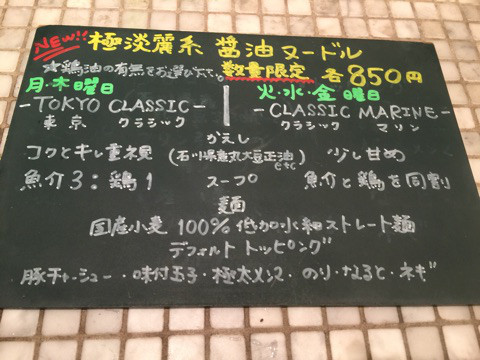 NEW!! 極淡麗系 醤油ヌードル
☆鶏油の有無をお選び下さい。 数量限定 各850円
月・木曜日 火・水・金曜日
-TOKYO CLASSIC- -CLASSIC MARINE-
東京 クラシック クラシック マリン
かえし
コクとキレ重視 (石川県産丸大豆正油 etc) 少し甘め
魚介3:鶏1 スープ 魚介と鶏を同割
麺
国産小麦100% 低加水細ストレート麺
デフォルトトッピング
豚チャーシュー・味付玉子・極太メンマ・のり・なると・ネギ